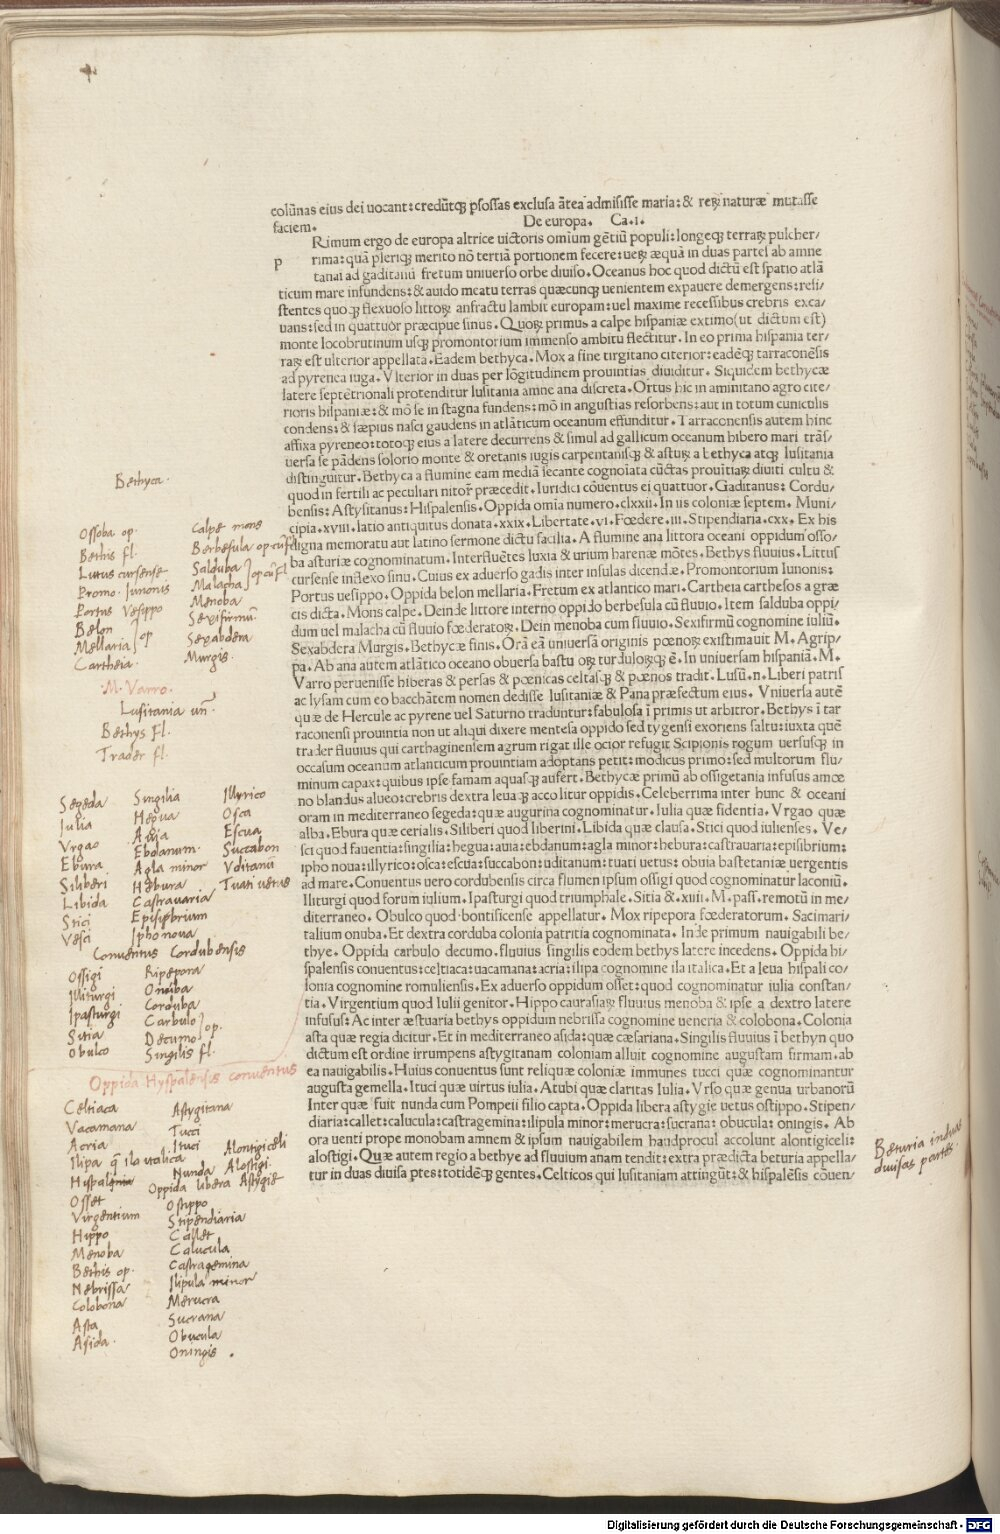 colũnas eius dei uocant: credũtqꝫ ꝑfossas exclusa ãtea admisisse maria: & reꝝ naturæ mutasse
faciem.
De europa. Ca.i.
p
Rimum ergo de europa altrice uictoris omium gẽtiũ populi: longeqꝫ terraꝝ pulcher/
rima: quã pleriqꝫ merito nõ tertiã portionem fecere: ueꝝ æquã in duas partes ab amne
tanai ad gaditanũ fretum uniuerso orbe diuiso. Oceanus hoc quod dictũ est spatio atlã
ticum mare infundens: & auido meatu terras quæcunqꝫ uenientem expauere demergens: resi/
stentes quoqꝫ flexuoso littoꝝ anfractu lambit europam: uel maxime recessibus crebris exca/
uans: sed in quattuor præcipue sinus. Quoꝝ primus a calpe hispaniæ extimo (ut dictum est)
monte locobrutinum usqꝫ promontorium immenso ambitu flectitur. In eo prima hispania ter/
raꝝ est ulterior appellata. Eadem bethyca. Mox a fine tirgitano citerior: eadẽqꝫ tarraconẽsis
ad pyrenea iuga. Vlterior in duas per lõgitudinem prouintias diuiditur. Siquidem bethycæ
latere septẽtrionali protenditur lusitania amne ana discreta. Ortus hic in aminitano agro cite/
rioris hispaniæ: & mõ se in stagna fundens: mõ in angustias resorbens: aut in totum cuniculis
condens: & sæpius nasci gaudens in atlãticum oceanum effunditur. Tarraconensis autem hinc
affixa pyreneo: totoqꝫ eius a latere decurrens & simul ad gallicum oceanum hibero mari trãs/
uersa se pãdens solorio monte & oretanis iugis carpentanisqꝫ & astuꝝ a bethyca atqꝫ lusitania
distinguitur. Bethyca a flumine eam mediã secante cognoiata cũctas prouĩtiaꝝ diuiti cultu &
quod in fertili ac peculiari nitor præcedit. Iuridici cõuentus ei quattuor. Gaditanus: Cordu/
bensis: Astysitanus: Hispalensis. Oppida omia numero.clxxii. In iis coloniæ septem. Muni/
cipia.xviii.latio antiquitus donata.xxix. Libertate.vi. Fœdere.iii. Stipendiaria.cxx. Ex his
digna memoratu aut latino sermone dictu facilia. A flumine ana littora oceani oppidum osso/
ba asturiæ cognominatum. Interfluẽtes luxia & urium harenæ mõtes. Bethys fluuius. Littus
cursense inflexo sinu. Cuius ex aduerso gadis inter insulas dicendæ. Promontorium Iunonis:
Portus uesippo. Oppida belon mellaria. Fretum ex atlantico mari. Cartheia carthesos a græ
cis dicta. Mons calpe. Deinde littore interno oppido berbesula cũ fluuio. Item salduba oppi/
dum uel malacha cũ fluuio fœderatoꝝ. Dein menoba cum fluuio. Sexifirmũ cognomine iuliũ.
Sexabdera Murgis. Bethycæ finis. Orã eã uniuersã originis pœnoꝝ existimauit M. Agrip/
pa. Ab ana autem atlãtico oceano obuersa bastu oꝝ turduloꝝqꝫ ẽ. In uniuersam hispaniã. M.
Varro peruenisse hiberas & persas & pœnicas celtasqꝫ & pœnos tradit. Lusũ.n. Liberi patris
ac lysam cum eo bacchãtem nomen dedisse lusitaniæ & Pana præfectum eius. Vniuersa autẽ
quæ de Hercule ac pyrene uel Saturno traduntur: fabulosa ĩ primis ut arbitror. Bethys ĩ tar
raconensi prouintia non ut aliqui dixere mentesa oppido sed tygensi exoriens saltu: iuxta quẽ
trader fluuius qui carthaginensem agrum rigat ille ocior refugit Scipionis rogum uersusqꝫ in
occasum oceanum atlanticum prouintiam adoptans petit: modicus primo: sed multorum flu/
minum capax: quibus ipse famam aquasqꝫ aufert. Bethycæ primũ ab ossigetania infusus amœ
no blandus alueo: crebris dextra leuaqꝫ accolitur oppidis. Celeberrima inter hunc & oceani
oram in mediterraneo segeda: quæ augurina cognominatur. Iulia quæ fidentia. Vrgao quæ
alba. Ebura quæ cerialis. Siliberi quod liberini. Libida quæ clausa. Stici quod iulienses. Ve/
sci quod fauentia: singilia: hegua: auia: ebdanum: agla minor: hebura: castrauaria: episibrium:
ipho noua: illyrico: osca: escua: succabon: uditanum: tuati uetus: obuia bastetaniæ uergentis
ad mare. Conuentus uero cordubensis circa flumen ipsum ossigi quod cognominatur laconiũ.
Iliturgi quod forum iulium. Ipasturgi quod triumphale. Sitia &.xiii.M.pass.remotũ in me/
diterraneo. Obulco quod bontificense appellatur. Mox ripepora fœderatorum. Sacimari/
talium onuba. Et dextra corduba colonia patritia cognominata. Inde primum nauigabili be/
thye. Oppida carbulo decumo. fluuius singilis eodem bethys latere incedens. Oppida hi/
spalensis conuentus: celtiaca: uacamana: acria: ilipa cognomine ila italica. Et a leua hispali co/
lonia cognomine romuliensis. Ex aduerso oppidum osset: quod cognominatur iulia constan/
tia. Virgentium quod Iulii genitor. Hippo caurasiaꝝ fluuius menoba & ipse a dextro latere
infusus: Ac inter æstuaria bethys oppidum nebrissa cognomine ueneria & colobona. Colonia
asta quæ regia dicitur. Et in mediterraneo asida: quæ cæsariana. Singilis fluuius ĩ bethyn quo
dictum est ordine irrumpens astygitanam coloniam alluit cognomine augustam firmam. ab
ea nauigabilis. Huius conuentus sunt reliquæ coloniæ immunes tucci quæ cognominantur
augusta gemella. Ituci quæ uirtus iulia. Atubi quæ claritas Iulia. Vrso quæ genua urbanorũ
Inter quæ fuit nunda cum Pompeii filio capta. Oppida libera astygie uetus ostippo. Stipen/
diaria: callet: calucula: castragemina: ilipula minor: merucra: sucrana: obucula: oningis. Ab
ora uenti prope monobam amnem & ipsum nauigabilem haudprocul accolunt alontigiceli:
alostigi. Quæ autem regio a bethye ad fluuium anam tendit: extra prædicta beturia appella/
tur in duas diuisa ꝑtes: totidẽqꝫ gentes. Celticos qui lusitaniam attingũt: & hispalẽsis cõuen/
Bethyca.
Ossoba op.
Bethis fl.
Litus cursense
Promo. Junonis
Portus Vesippo
Belon
Mellaria ] op
Cartheia.
Calpe mons
Berbesula op. cũ fl
Salduba
Malacha ] op cũ fl
Menoba
Sexifirmũ.
Sexabdera
Murgis.
M. Varro.
Lusitania un.
Bethys fl.
Trader fl.
Segeda
Julia
Vrgao
Ebura
Siliberi
Libida
Stici
Vesci
Singilia
Hegua
Auia
Ebdanum.
Agla minor
Hebura
Castravaria
Episibrium
Ipho nova
Illyrico
Osca
Escua
Succabon
Vditanũ
Tuati vetus
Conventus Cordubensis
Ossigi
Illiturgi
Ipasturgi
Sitia
Obulco
Ripepora
Onuba
Corduba
Carbulo
Decumo ] op.
Singilis fl.
Oppida Hyspalensis conventus
Celtiaca
Vacamana
Acria
Ilipa q̃ ila italica
Hispalenia
Osset
Virgentium
Hippo
Menoba
Bethis op.
Nebrissa
Colobona
Asta
Asida.
Astygitana
Tucci
Ituci
Nunda
Alontigiceli
Alostigi
Oppida libera Astygie
Ostippo
Stipendiaria
Callet
Calucula
Castragemina
Ilipula minor
Merucra
Sucrana
Obucula
Oningis.
Beturia in duas
divisas partes
Digitalisierung gefördert durch die Deutsche Forschungsgemeinschaft - DFG